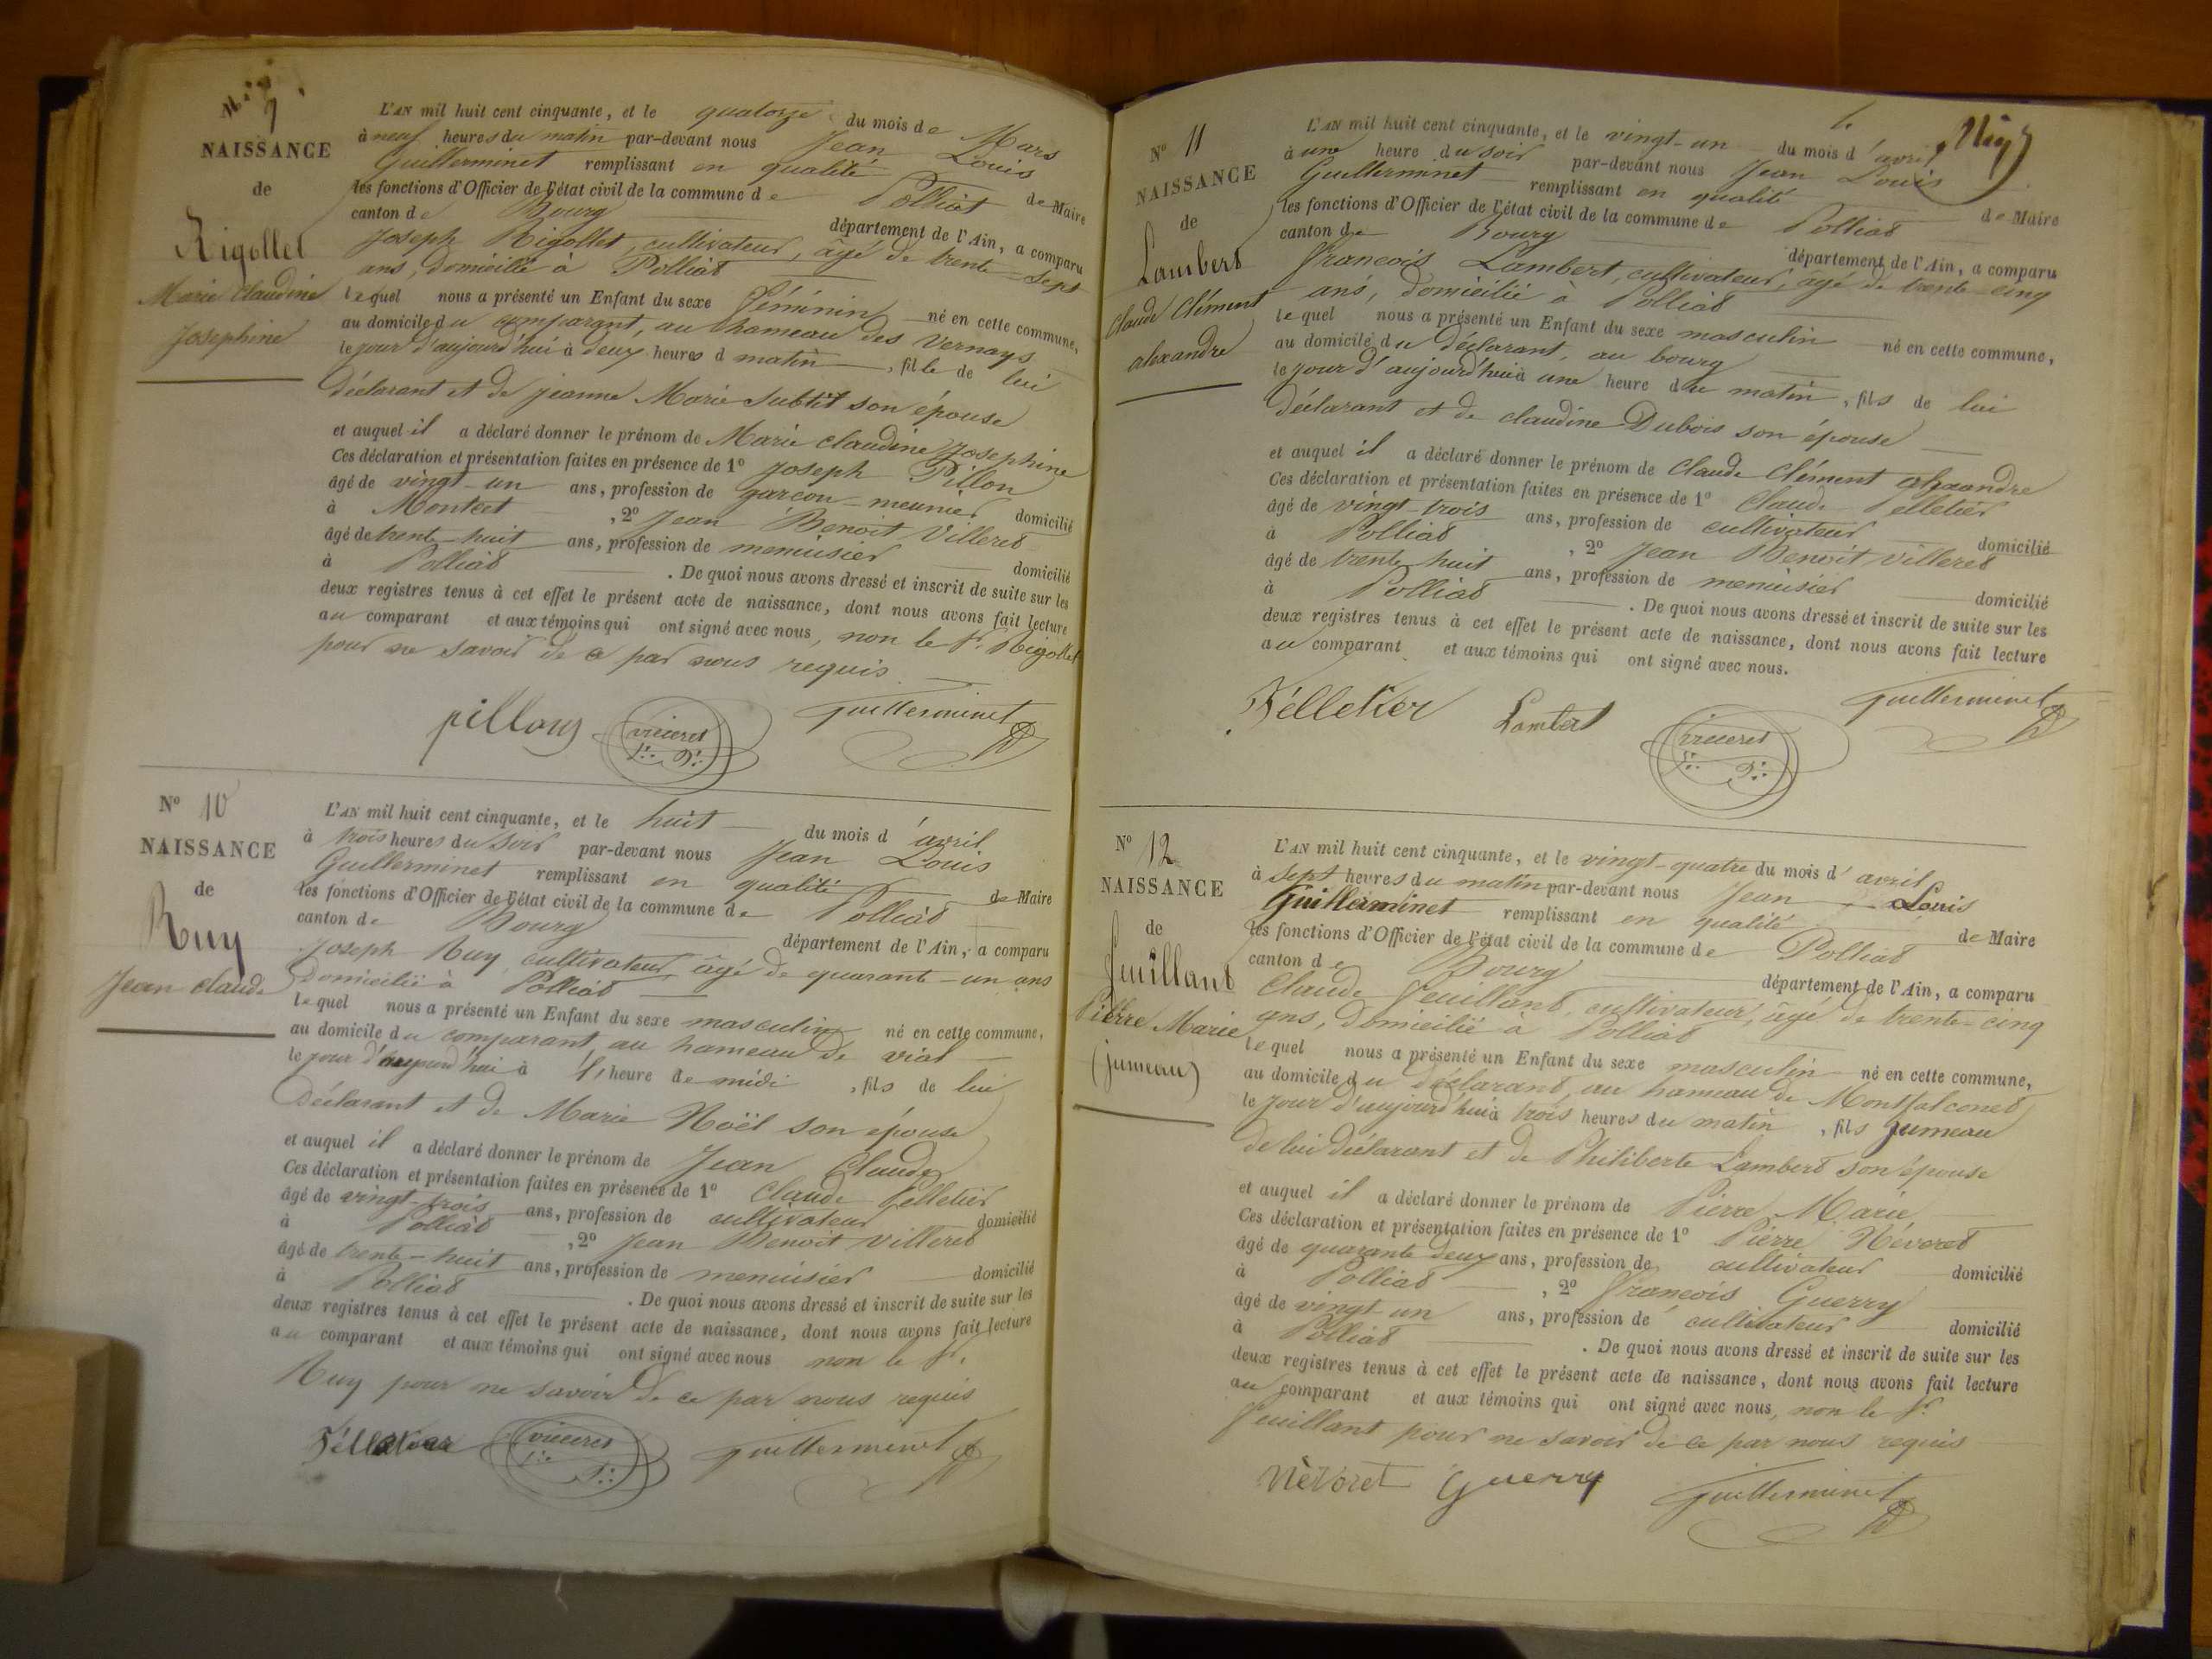 9
NAISSANCE
de
Rigollet
Marie Claudine
Josephine
L'AN mil huit cent cinquante, et le quatorze du mois de Mars
à neuf heures du matin par-devant nous Jean Louis
Guillerminet remplissant en qualité de Maire
les fonctions d'Officier de l'état civil de la commune de Polliat
canton de Bourg département de l'Ain, a comparu
Joseph Rigollet, cultivateur, âgé de trente-sept
ans, domicilié à Polliat
lequel nous a présenté un Enfant du sexe féminin né en cette commune,
au domicile du comparant, au hameau des Vernays
le jour d'aujourd'hui à deux heures d matin, fille de lui
déclarant et de jeanne Marie Subtit son épouse
et auquel il a déclaré donner le prénom de Marie Claudine Josephine
Ces déclaration et présentation faites en présence de 1º Joseph Pillon
âgé de vingt-un ans, profession de garcon-meunier domicilié
à Montcet, 2º Jean Benoit Villeret
âgé de trente-huit ans, profession de menuisier domicilié
à Polliat. De quoi nous avons dressé et inscrit de suite sur les
deux registres tenus à cet effet le présent acte de naissance, dont nous avons fait lecture
au comparant et aux témoins qui ont signé avec nous, non le Sr. Rigollet
pour ne savoir de ce par nous requis
pillon villeret guillerminet
Nº 10
NAISSANCE
de
Ruy
Jean Claude
L'AN mil huit cent cinquante, et le huit du mois d'avril
à trois heures du soir par-devant nous Jean Louis
Guillerminet remplissant en qualité de Maire
les fonctions d'Officier de l'état civil de la commune de Polliat
canton de Bourg département de l'Ain, a comparu
Joseph Ruy, cultivateur, âgé de quarante-un ans
domicilié à Polliat
lequel nous a présenté un Enfant du sexe masculin né en cette commune,
au domicile du comparant, au hameau de viat
le jour d'aujourd'hui à 1, heure de midi, fils de lui
déclarant et de Marie Noël son épouse
et auquel il a déclaré donner le prénom de Jean Claude
Ces déclaration et présentation faites en présence de 1º Claude Pelletier
âgé de vingt-trois ans, profession de cultivateur domicilié
à Polliat, 2º Jean Benoit Villeret
âgé de trente-huit ans, profession de menuisier domicilié
à Polliat. De quoi nous avons dressé et inscrit de suite sur les
deux registres tenus à cet effet le présent acte de naissance, dont nous avons fait lecture
au comparant et aux témoins qui ont signé avec nous non le Sr.
Ruy pour ne savoir de ce par nous requis
villeret guillerminet
Nº 11
NAISSANCE
de
Lambert
Claude Clément
alexandre
L'AN mil huit cent cinquante, et le vingt-un du mois d'avril
à une heure du soir par-devant nous Jean Louis
Guillerminet remplissant en qualité de Maire
les fonctions d'Officier de l'état civil de la commune de Polliat
canton de Bourg département de l'Ain, a comparu
Francois Lambert, cultivateur, âgé de trente-cinq
ans, domicilié à Polliat
lequel nous a présenté un Enfant du sexe masculin né en cette commune,
au domicile du déclarant, au bourg
le jour d'aujourd'hui à une heure du matin, fils de lui
déclarant et de claudine Dubois son épouse
et auquel il a déclaré donner le prénom de Claude Clément alexandre
Ces déclaration et présentation faites en présence de 1º Claude Pelletier
âgé de vingt-trois ans, profession de cultivateur domicilié
à Polliat, 2º Jean Benoit Villeret
âgé de trente huit ans, profession de menuisier domicilié
à Polliat. De quoi nous avons dressé et inscrit de suite sur les
deux registres tenus à cet effet le présent acte de naissance, dont nous avons fait lecture
au comparant et aux témoins qui ont signé avec nous.
Pelletier Lambert villeret guillerminet
Nº 12
NAISSANCE
de
feuillant
Pierre Marie
(jumeau)
L'AN mil huit cent cinquante, et le vingt-quatre du mois d'avril
à sept heures du matin par-devant nous Jean Louis
Guillerminet remplissant en qualité de Maire
les fonctions d'Officier de l'état civil de la commune de Polliat
canton de Bourg département de l'Ain, a comparu
Claude feuillant, cultivateur, âgé de trente-cinq
ans, domicilié à Polliat
lequel nous a présenté un Enfant du sexe masculin né en cette commune,
au domicile du déclarant, au hameau de Montfalconet
le jour d'aujourd'hui à trois heures du matin, fils jumeau
de lui déclarant et de Philiberte Lambert son épouse
et auquel il a déclaré donner le prénom de Pierre Marie
Ces déclaration et présentation faites en présence de 1º Pierre Névoret
âgé de quarante deux ans, profession de cultivateur domicilié
à Polliat, 2º Francois Guerry
âgé de vingt-un ans, profession de cultivateur domicilié
à Polliat. De quoi nous avons dressé et inscrit de suite sur les
deux registres tenus à cet effet le présent acte de naissance, dont nous avons fait lecture
au comparant et aux témoins qui ont signé avec nous, non le Sr.
feuillant pour ne savoir de ce par nous requis
Nèvoret Guerry guillerminet